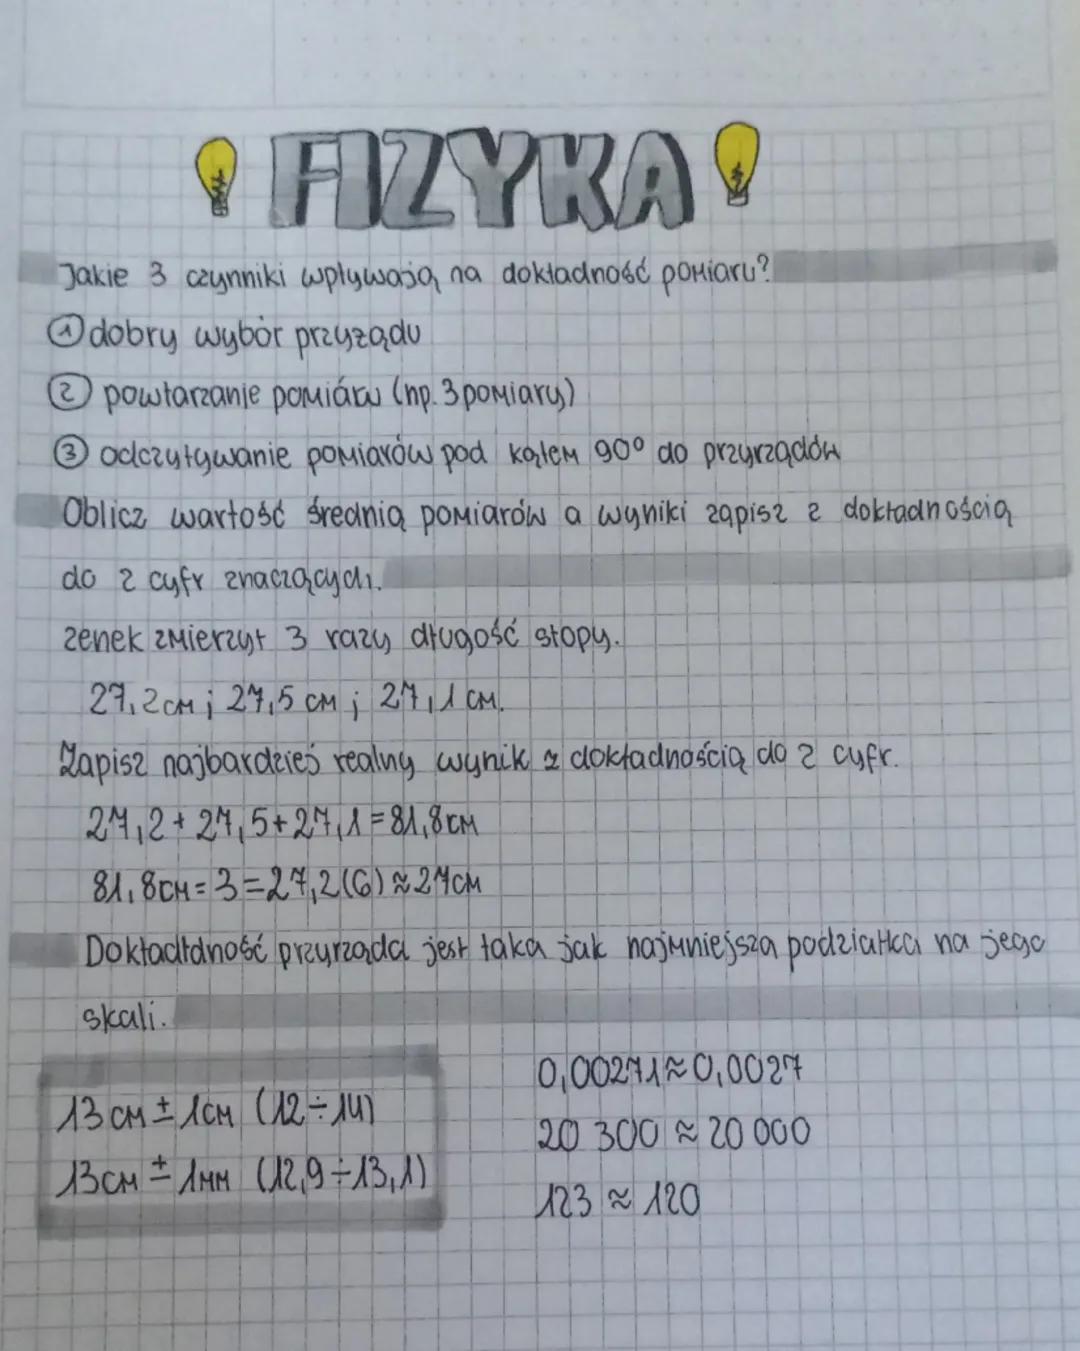 FIZYKA
Jakie 3 czynniki wpływają na dokładność pomiaru?
① dobry wybór przyżądu
② powtarzanie pomiáru (np. 3 pomiary)
③ odczytywanie pomiarów pod kątem 90° do przyrządów
Oblicz wartość średnią pomiarów a wyniki zapisz z dokładnością
do 2 cyfr znaczących.
zenek zmierzył 3 razy długość stopy.
27,2cm ; 27,5 cm ; 27,1 cm.
Zapisz najbardziej realny wynik z dokładnością do 2 cyfr.
27,2 + 27,5 + 27,1 = 81,8cm
81,8cm = 3 = 27,2(6) ≈ 27cm
Dokładtdność przyrząda jest taka jak najmniejsza podziałka na jego
skali.
13 cm ± 1cm (12 ÷ 14)
13cm ± 1mm (12,9 ÷ 13,1)
0,00271 ≈ 0,0027
20 300 ≈ 20 000
123 ≈ 120